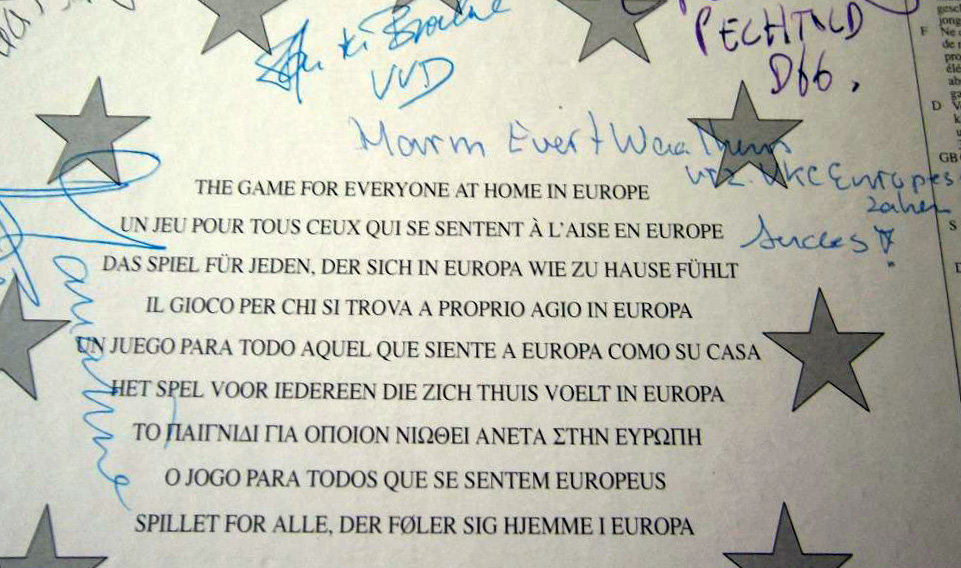 PECHTOLD
VVD
D66,
THE GAME FOR EVERYONE AT HOME IN EUROPE
Europes
zaken
UN JEU POUR TOUS CEUX QUI SE SENTENT À L'AISE EN EUROPE
Succes!
DAS SPIEL FÜR JEDEN, DER SICH IN EUROPA WIE ZU HAUSE FÜHLT
IL GIOCO PER CHI SI TROVA A PROPRIO AGIO IN EUROPA
UN JUEGO PARA TODO AQUEL QUE SIENTE A EUROPA COMO SU CASA
HET SPEL VOOR IEDEREEN DIE ZICH THUIS VOELT IN EUROPA
ΤΟ ΠΑΙΓΝΙΔΙ ΓΙΑ ΟΠΟΙΟΝ ΝΙΩΘΕΙ ΑΝΕΤΑ ΣΤΗΝ ΕΥΡΩΠΗ
O JOGO PARA TODOS QUE SE SENTEM EUROPEUS
SPILLET FOR ALLE, DER FØLER SIG HJEMME I EUROPA
F
D
GB
S